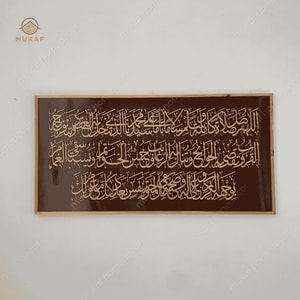 MUKAF
اللهم صل صلاة كاملة وسلم سلاما تاما على سيدنا محمد الذي تنحل به العقد وتنفرج به
الكرب وتقضى به الحوائج وتنال به الرغائب وحسن الخواتم ويستسقى الغمام
بوجهه الكريم وعلى آله وصحبه في كل لمحة ونفس بعدد كل معلوم لك